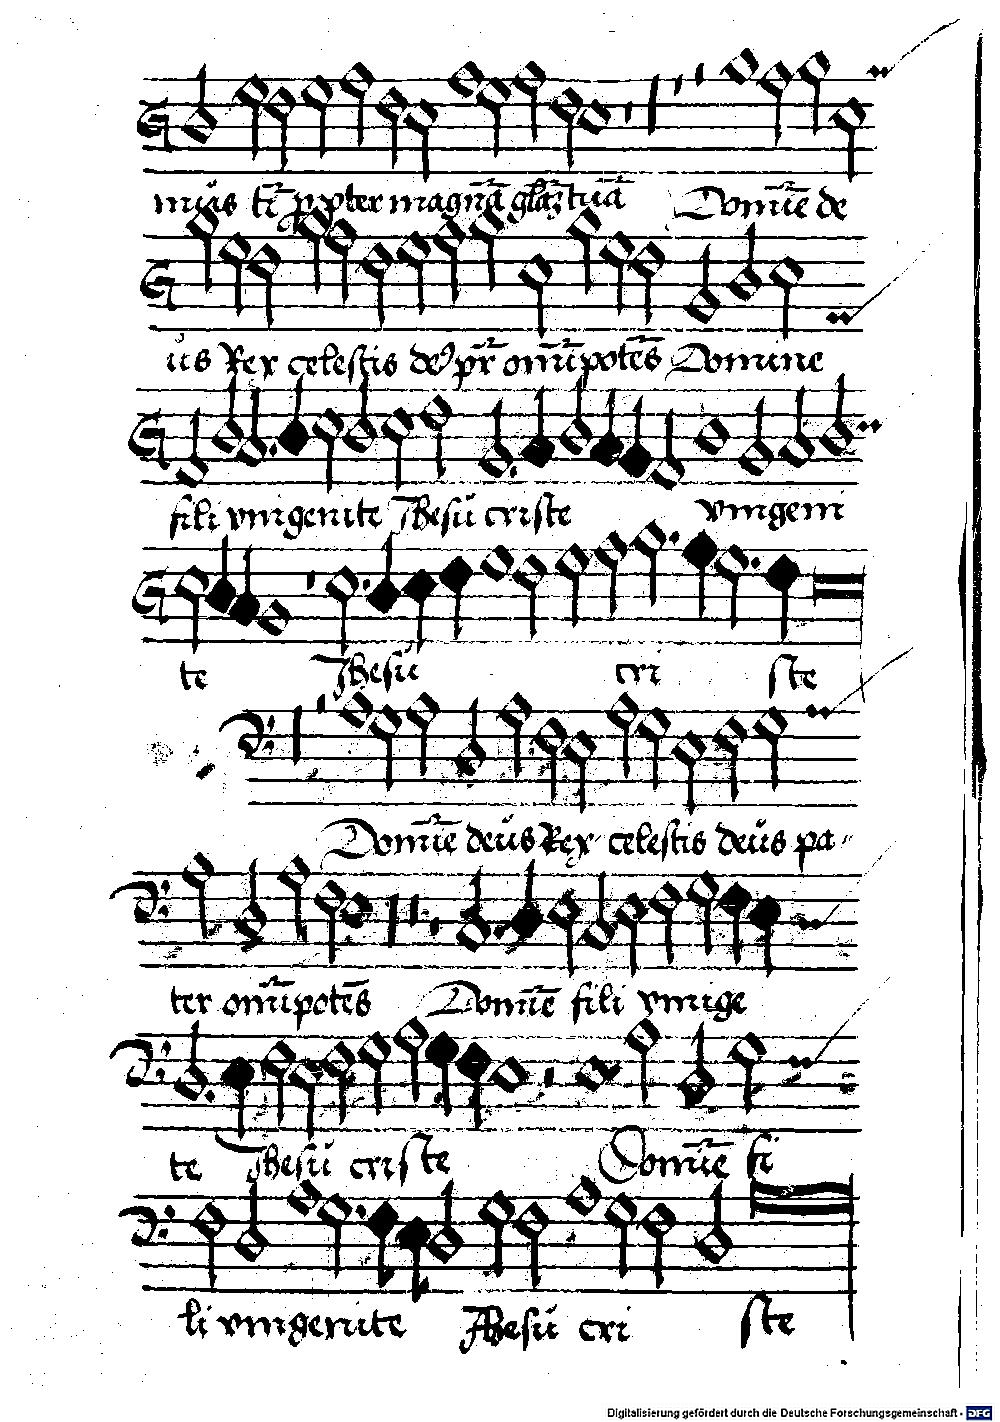 mus tı̄ ꝓpter magnā glāz tuā Domīe de
us Rex celestis de9 pr̄ omīpotēs Domine
fili vnigenite Jhesu criste vnigeni
te Jhesu cri ste
Domīe deus Rex celestis deus pa
ter omīpotēs Domīe fili vnige
te Jhesu criste Domīe fi
li vnigenite Jhesu cri ste
Digitalisierung gefördert durch die Deutsche Forschungsgemeinschaft - DFG